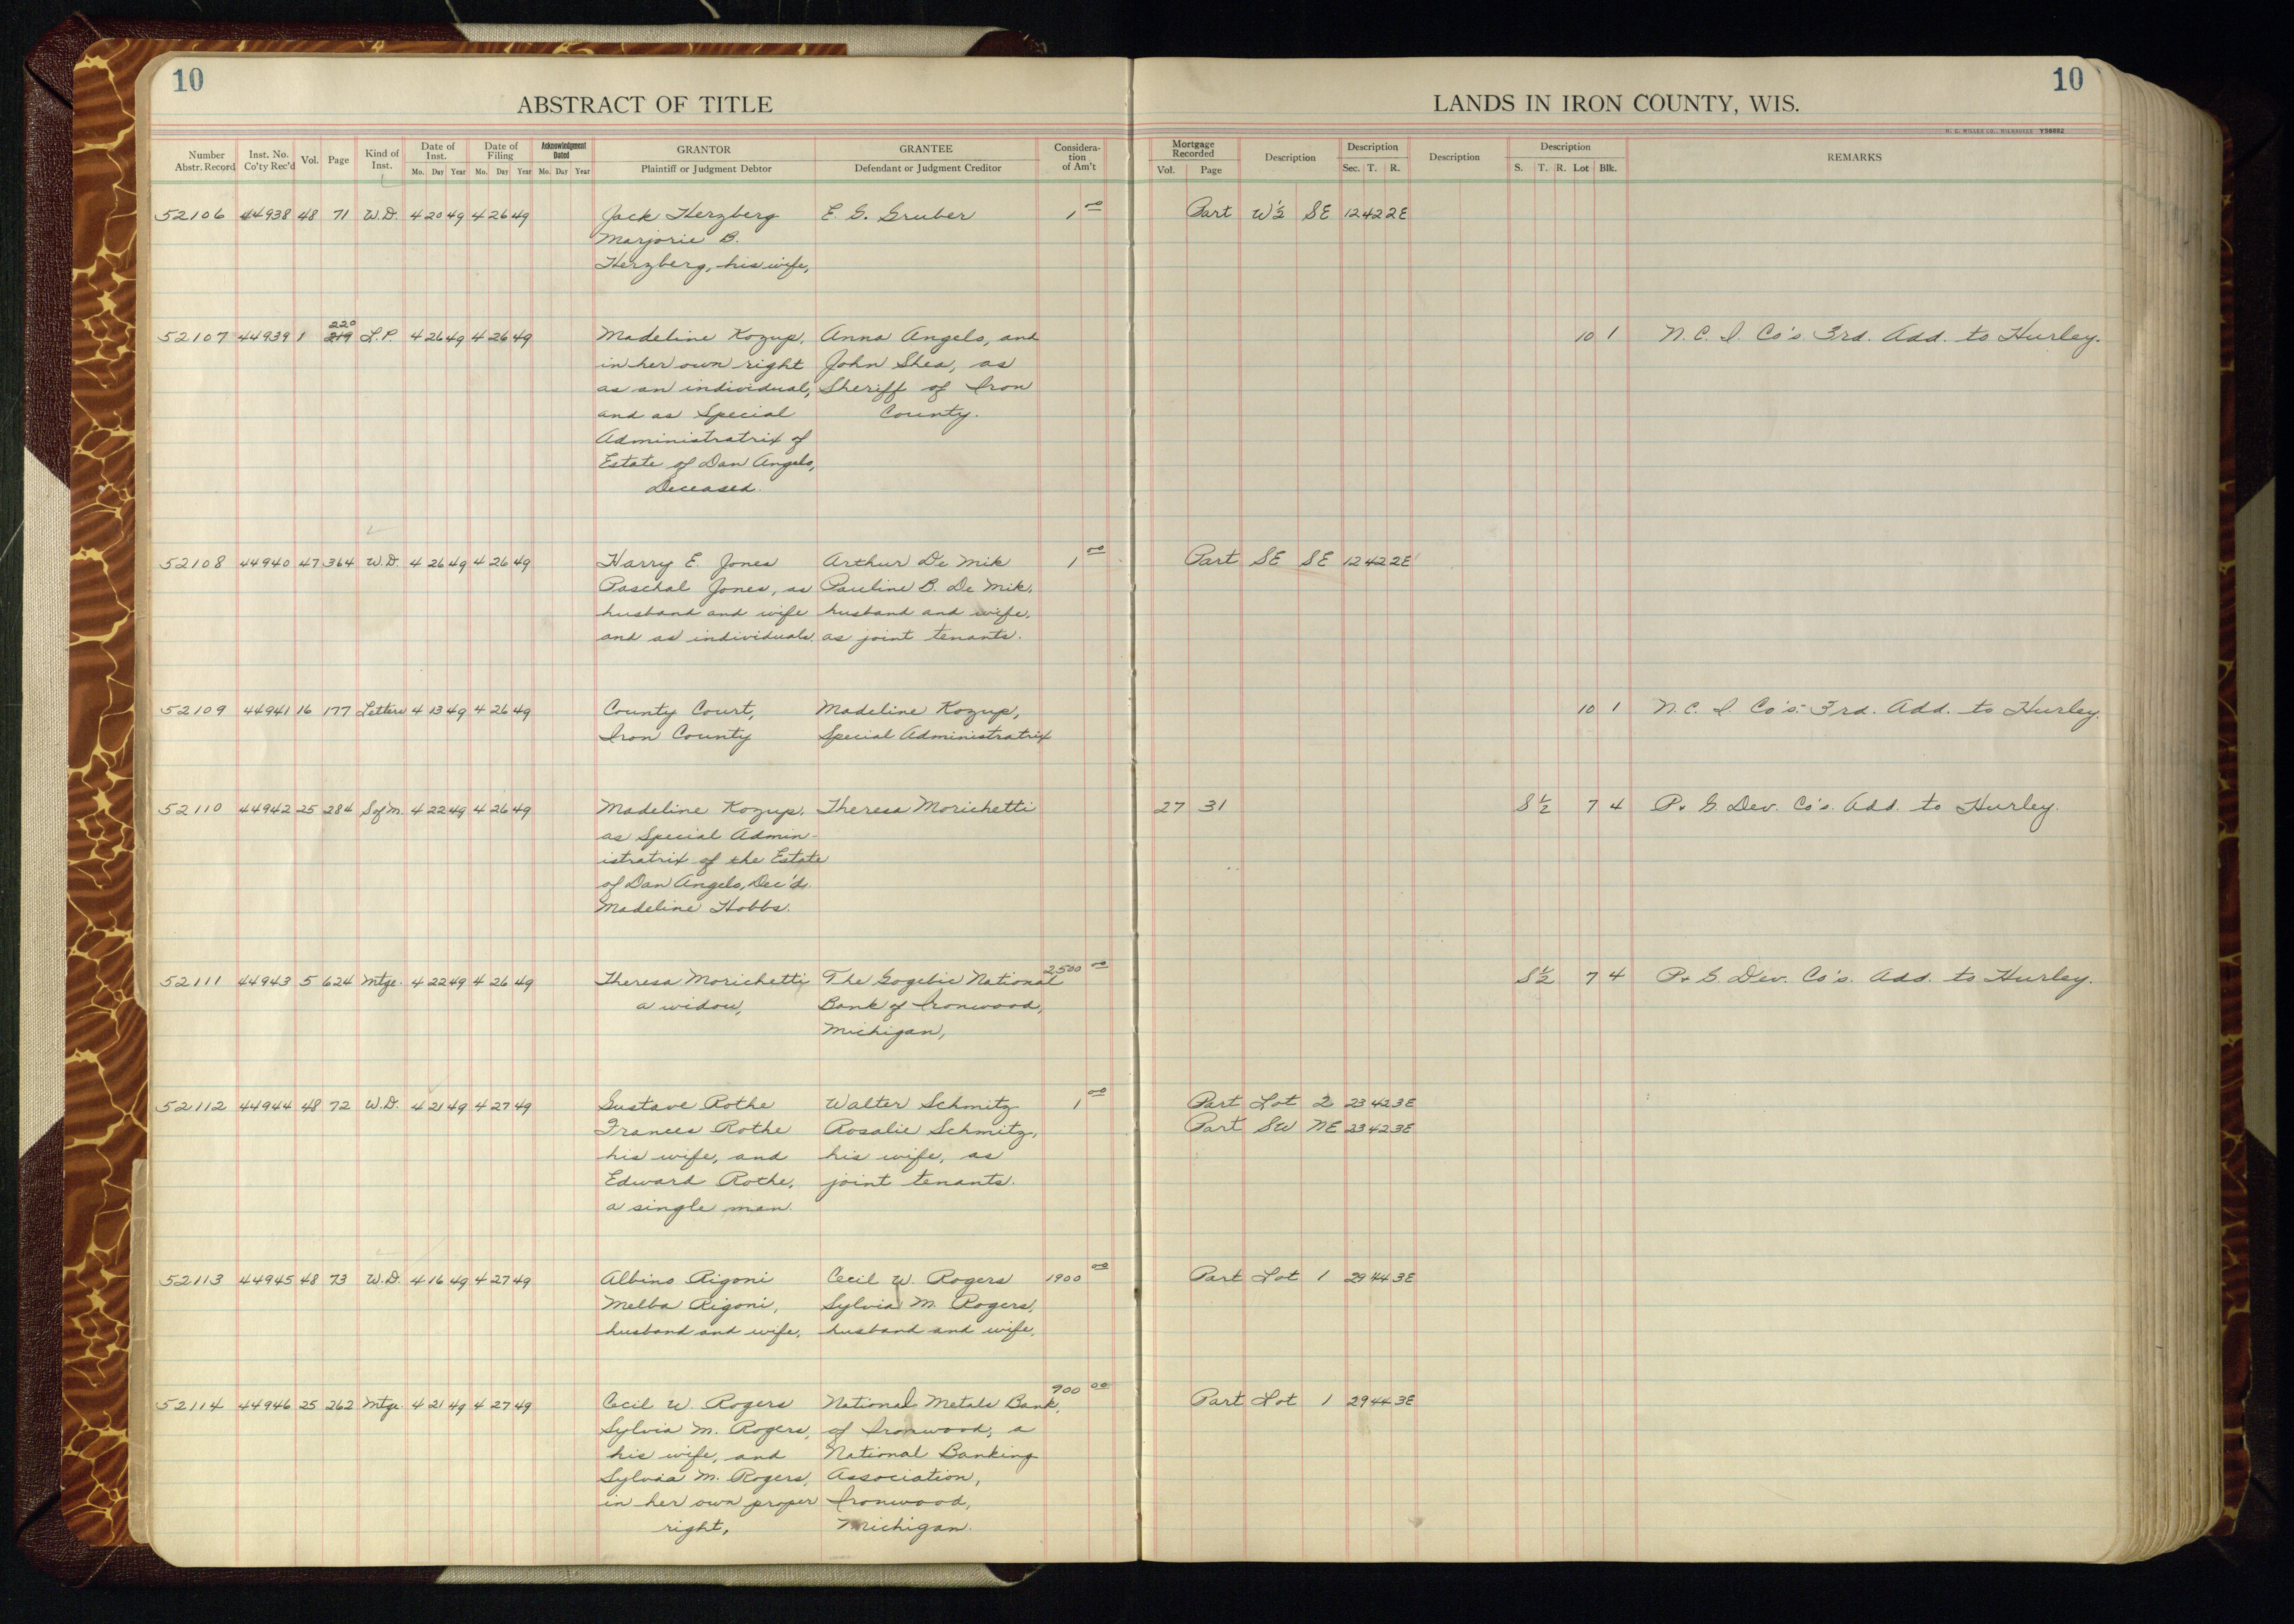 10
10
ABSTRACT OF TITLE
LANDS IN IRON COUNTY, WIS.
H. C. MILLER CO., MILWAUKEE Y36882
Number Abstr. Record Inst. No. Co'ty Rec'd Vol. Page Kind of Inst. Date of Inst. Mo. Day Year Date of Filing Mo. Day Year Acknowledgment Dated Mo. Day Year GRANTOR Plaintiff or Judgment Debtor GRANTEE Defendant or Judgment Creditor Considera-tion of Am't Mortgage Recorded Vol. Page Description Description Sec. T. R. Description Description S. T. R. Lot Blk. REMARKS
52106 44938 48 71 W.D. 4 20 49 4 26 49 Jack Herzberg E. G. Gruber 1 00 Part W½ SE 12 42 2E
Marjorie B.
Herzberg, his wife,
220
52107 44939 1 219 L.P. 4 26 49 4 26 49 Madeline Kozup, Anna Angelo, and 10 1 N. C. I. Co's. 3rd. Add. to Hurley.
in her own right John Shea, as
as an individual, Sheriff of Iron
and as Special County.
Administratrix of
Estate of Dan Angelo,
Deceased.
52108 44940 47 364 W.D. 4 26 49 4 26 49 Harry E. Jones Arthur De Mik 1 00 Part SE SE 12 42 2E
Paschal Jones, as Pauline B. De Mik,
husband and wife husband and wife,
and as individuals, as joint tenants.
52109 44941 16 177 Letters 4 13 49 4 26 49 County Court, Madeline Kozup, 10 1 N. C. I. Co's. 3rd. Add. to Hurley.
Iron County Special Administratrix
52110 44942 25 284 S of M. 4 22 49 4 26 49 Madeline Kozup, Theresa Morichetti 27 31 S½ 7 4 P. & G. Dev. Co's. Add. to Hurley.
as Special Admin-
istratrix of the Estate
of Dan Angelo, Dec'd.
Madeline Hobbs.
52111 44943 5 624 Mtge. 4 22 49 4 26 49 Theresa Morichetti The Gogebic National 2500 00 S½ 7 4 P. & G. Dev. Co's. Add. to Hurley.
a widow, Bank of Ironwood,
Michigan,
52112 44944 48 72 W.D. 4 21 49 4 27 49 Gustave Rothe Walter Schmitz 1 00 Part Lot 2 23 42 3E
Frances Rothe Rosalie Schmitz, Part SW NE 23 42 3E
his wife, and his wife, as
Edward Rothe, joint tenants.
a single man.
52113 44945 48 73 W.D. 4 16 49 4 27 49 Albino Rigoni Cecil W. Rogers 1900 00 Part Lot 1 29 44 3E
Melba Rigoni, Sylvia M. Rogers,
husband and wife, husband and wife,
52114 44946 25 262 Mtge. 4 21 49 4 27 49 Cecil W. Rogers National Metals Bank, 900 00 Part Lot 1 29 44 3E
Sylvia M. Rogers, of Ironwood, a
his wife, and National Banking
Sylvia M. Rogers, Association,
in her own proper Ironwood,
right, Michigan.